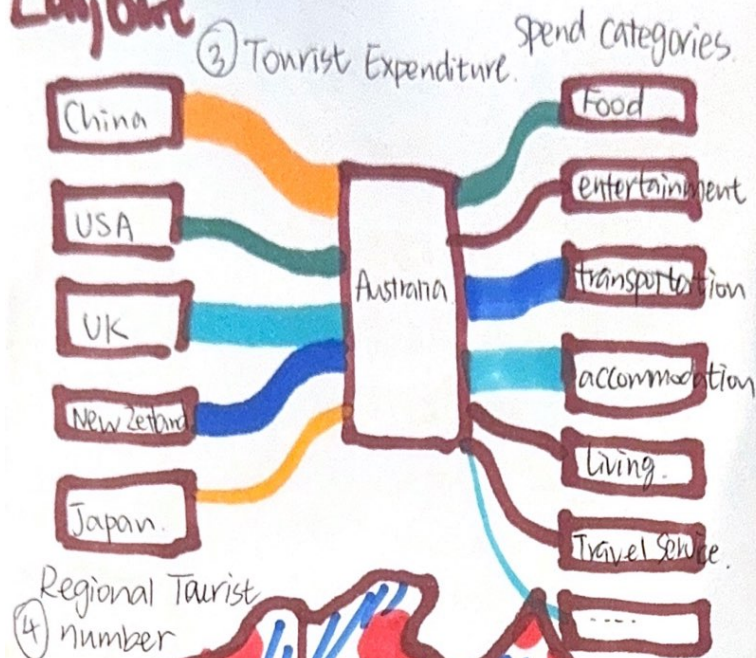 Layout
③ Tourist Expenditure.
Spend categories.
China
USA
UK
New Zeland
Japan.
Australia
Food
entertainment
transportation
accommodation
living.
Travel Service.
....
Regional Tourist
④ number